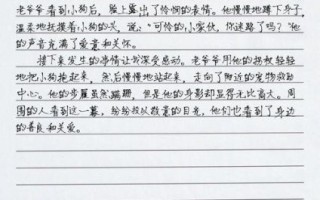 老爷爷看到小狗后，脸上露出了怜悯的表情。他慢慢地蹲下身子，
温柔地抚摸着小狗的头，说："可怜的小家伙，你迷路了吗？"他
的声音充满了慈爱和关怀。
接下来发生的事情让我深受感动。老爷爷用他的拐杖轻轻
地把小狗抱起来，然后慢慢地站起来，走向了附近的宠物救助
中心。他的步履虽然蹒跚，但是他的身影却显得无比高大。周
围的人看到这一幕，纷纷投以敬重的目光，他们也看到了身边
的善良和关爱。